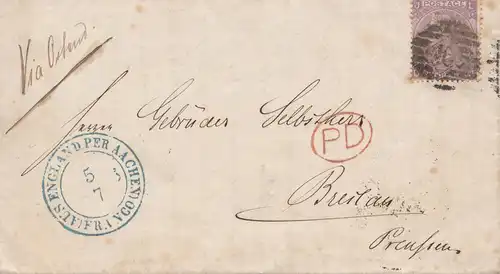 Via Ostend.
POSTAGE
Herrn Gebrüder Selbstherr
PD
AUS ENGLAND PER AACHEN FRANCO
5 3
7
Breslau
Preußen